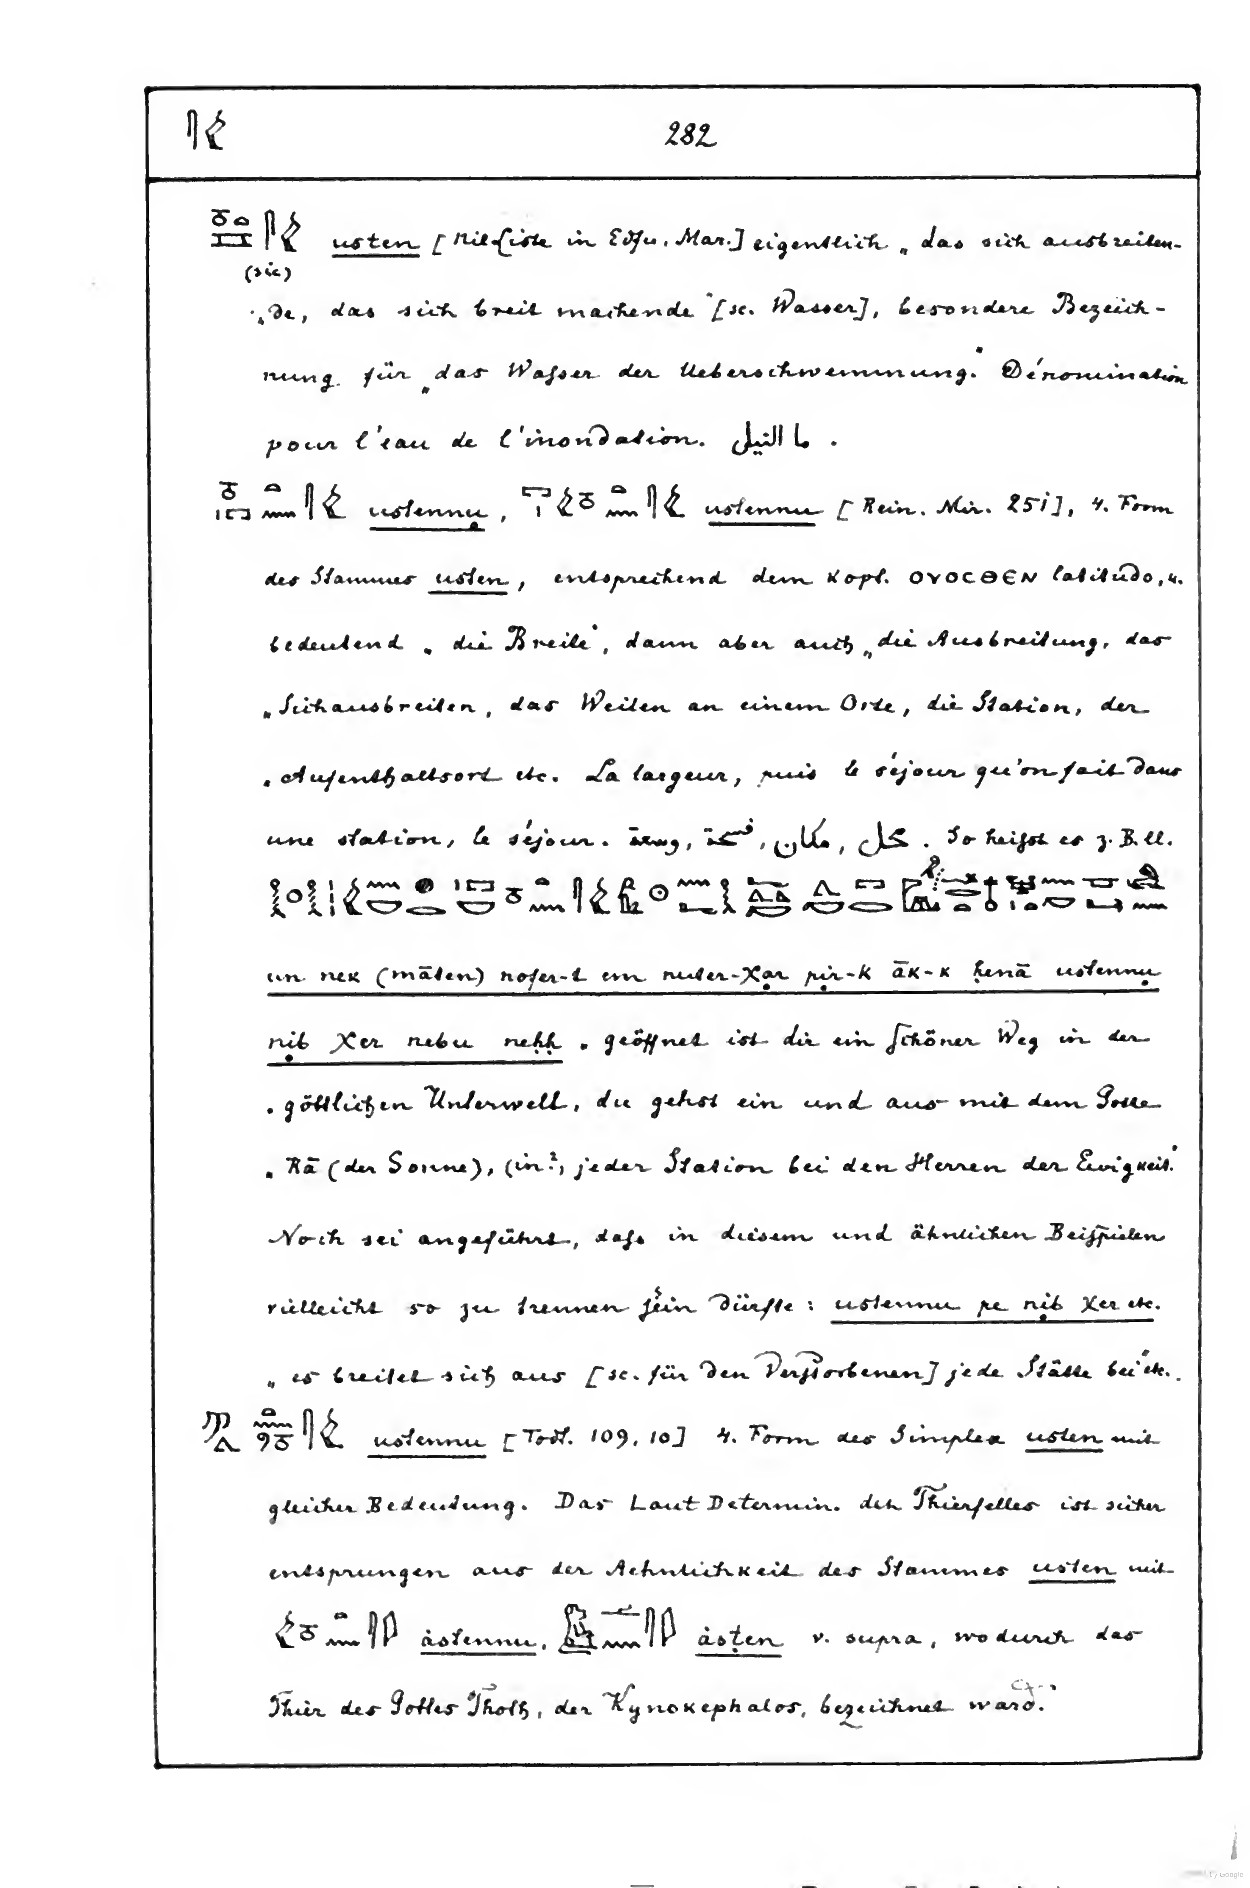 282
usten [Nil-Liste in Edfu. Mar.] eigentlich „das sich ausbreiten-
(sic)
„de, das sich breit machende" [sc. Wasser], besondere Bezeich-
nung für „das Waſser der Ueberschwemmung." Dénomination
pour l'eau de l'inondation. ما النيل .
ustennu, ustennu [Rein. Mir. 25i], 4. Form
des Stammes usten, entsprechend dem Kopt. ⲞⲨⲞⲤⲐⲈⲚ latitudo, u.
bedeutend „die Breite", dann aber auch „die Ausbreitung, das
„Sichausbreiten, das Weilen an einem Orte, die Station, der
„Aufenthaltsort etc. La largeur, puis le séjour qu'on fait dans
une station, le séjour. فسحة, مكان, . So heiſst es z. B. ll.
un nek (māten) nofer-t em nuter-χar pir-k āk-k ḥenā ustennu
nib χer nebu neḥḥ „geöffnet ist dir ein schöner Weg in der
„göttlichen Unterwelt, du gehst ein und aus mit dem Gotte
„Rā (der Sonne), (in?) jeder Station bei den Herren der Ewigkeit."
Noch sei angeführt, daſs in diesem und ähnlichen Beispielen
vielleicht so zu trennen sein dürfte: ustennu pe nib χer etc.
„es breitet sich aus [sc. für den Verstorbenen] jede Stätte bei" etc.
ustennu [Todt. 109, 10] 4. Form des Simplex usten mit
gleicher Bedeutung. Das Laut Determin. des Thierfelles ist sicher
entsprungen aus der Aehnlichkeit des Stammes usten mit
ȧstennu, ȧsṭen v. supra, wodurch das
Thier des Gottes Thoth, der Kynokephalos, bezeichnet ward.